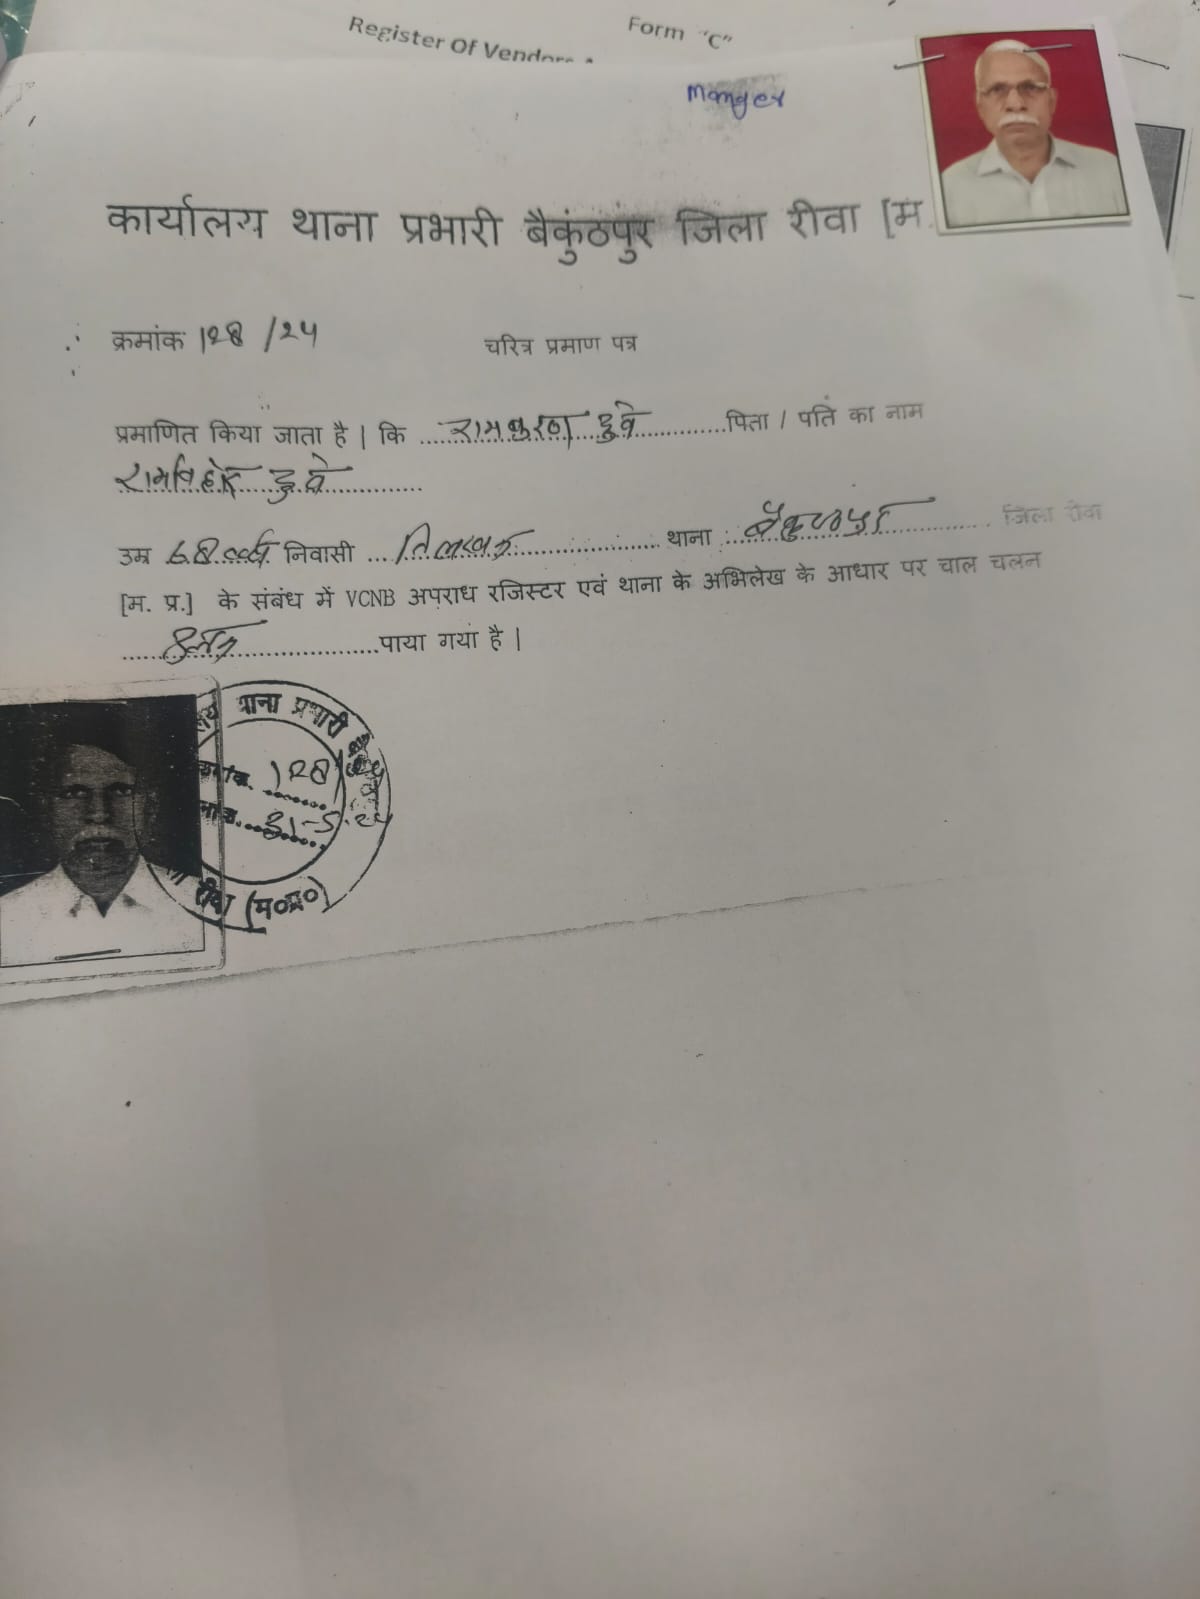 Form "C"
Register Of Vendors
manger
कार्यालय थाना प्रभारी बैकुंठपुर जिला रीवा [म.
क्रमांक 128 /24
चरित्र प्रमाण पत्र
प्रमाणित किया जाता है | कि ....रामकरण दुबे..........पिता / पति का नाम
दुबे
उम्र 68 वर्ष निवासी ... थाना ..बैकुण्ठपुर.......... जिला रीवा
[म. प्र.] के संबंध में VCNB अपराध रजिस्टर एवं थाना के अभिलेख के आधार पर चाल चलन
....................पाया गया है |
थाना प्रभारी
128
31-5.24
रीवा (म०प्र०)